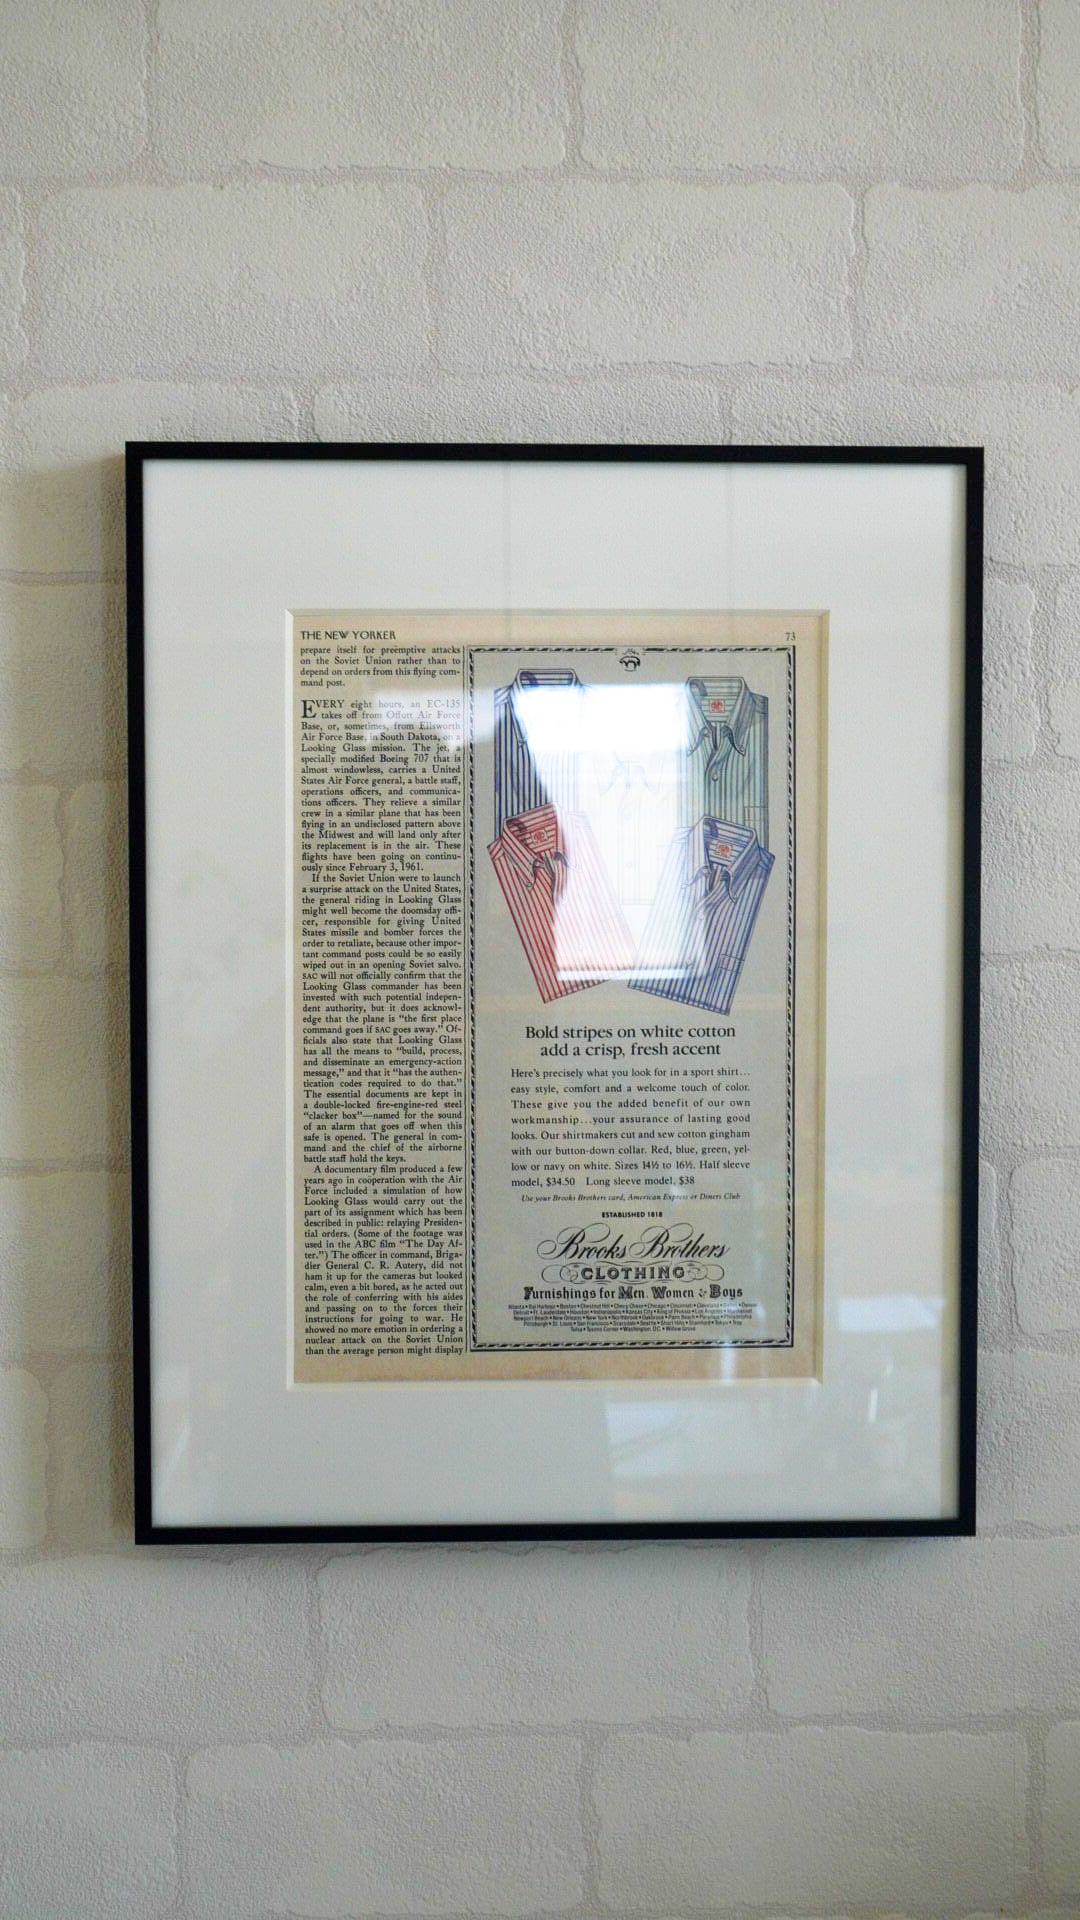 THE NEW YORKER
73
prepare itself for preëmptive attacks
on the Soviet Union rather than to
depend on orders from this flying com-
mand post.
EVERY eight hours, an EC-135
takes off from Offutt Air Force
Base, or, sometimes, from Ellsworth
Air Force Base, in South Dakota, on a
Looking Glass mission. The jet, a
specially modified Boeing 707 that is
almost windowless, carries a United
States Air Force general, a battle staff,
operations officers, and communica-
tions officers. They relieve a similar
crew in a similar plane that has been
flying in an undisclosed pattern above
the Midwest and will land only after
its replacement is in the air. These
flights have been going on continu-
ously since February 3, 1961.
If the Soviet Union were to launch
a surprise attack on the United States,
the general riding in Looking Glass
might well become the doomsday offi-
cer, responsible for giving United
States missile and bomber forces the
order to retaliate, because other impor-
tant command posts could be so easily
wiped out in an opening Soviet salvo.
SAC will not officially confirm that the
Looking Glass commander has been
invested with such potential indepen-
dent authority, but it does acknowl-
edge that the plane is "the first place
command goes if SAC goes away." Of-
ficials also state that Looking Glass
has all the means to "build, process,
and disseminate an emergency-action
message," and that it "has the authen-
tication codes required to do that."
The essential documents are kept in
a double-locked fire-engine-red steel
"clacker box"—named for the sound
of an alarm that goes off when this
safe is opened. The general in com-
mand and the chief of the airborne
battle staff hold the keys.
A documentary film produced a few
years ago in cooperation with the Air
Force included a simulation of how
Looking Glass would carry out the
part of its assignment which has been
described in public: relaying Presiden-
tial orders. (Some of the footage was
used in the ABC film "The Day Af-
ter.") The officer in command, Briga-
dier General C. R. Autery, did not
ham it up for the cameras but looked
calm, even a bit bored, as he acted out
the role of conferring with his aides
and passing on to the forces their
instructions for going to war. He
showed no more emotion in ordering a
nuclear attack on the Soviet Union
than the average person might display
Bold stripes on white cotton
add a crisp, fresh accent
Here's precisely what you look for in a sport shirt...
easy style, comfort and a welcome touch of color.
These give you the added benefit of our own
workmanship...your assurance of lasting good
looks. Our shirtmakers cut and sew cotton gingham
with our button-down collar. Red, blue, green, yel-
low or navy on white. Sizes 14½ to 16½. Half sleeve
model, $34.50 Long sleeve model, $38
Use your Brooks Brothers card, American Express or Diners Club
ESTABLISHED 1818
Brooks Brothers
CLOTHING
Furnishings for Men, Women & Boys
Atlanta • Bal Harbour • Boston • Chestnut Hill • Chevy Chase • Chicago • Cincinnati • Cleveland • Dallas • Denver
Detroit • Ft. Lauderdale • Houston • Indianapolis • Kansas City • King of Prussia • Los Angeles • Manhasset
Newport Beach • New Orleans • New York • Northbrook • Oakbrook • Palm Beach • Paramus • Philadelphia
Pittsburgh • St. Louis • San Francisco • Scarsdale • Seattle • Short Hills • Stamford • Tokyo • Troy
Tulsa • Tysons Corner • Washington, D.C. • Willow Grove